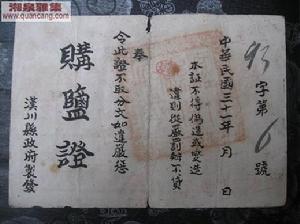 湘泉雅集
www.xqyjw.com
字第6號
中華民國三十一年 月 日
本証不得偽造或变造
違則從嚴罰辦不貸
奉
令此證不取分文如違嚴惩
購鹽證
漢川縣政府製發